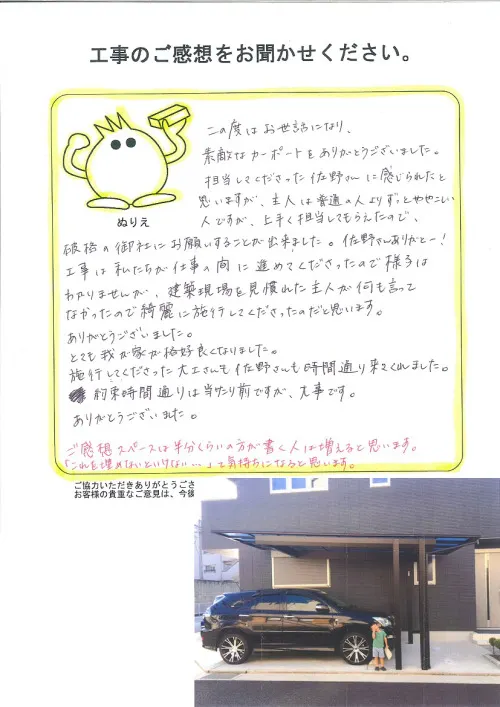 工事のご感想をお聞かせください。
ぬりえ
この度はお世話になり、
素敵なカーポートをありがとうございました。
担当してくださった佐野さんに感じられたと
思いますが、主人は普通の人よりずっとややこしい
人ですが、上手く担当してもらえたので、
破格の御社にお願いすることが出来ました。佐野さんありがとー!
工事は私たちが仕事の間に進めてくださったので様子は
わかりませんが、建築現場を見慣れた主人が何も言って
なかったので綺麗に施行してくださったのだと思います。
ありがとうございました。
とても我が家が格好良くなりました。
施行してくださった大工さんも佐野さんも時間通り来てくれました。
約束時間通りは当たり前ですが、大事です。
ありがとうございました。
ご感想スペースは半分くらいの方が書く人は増えると思います。
「これを埋めないといけない…」って気持ちになると思います。
ご協力いただきありがとうござ
お客様の貴重なご意見は、今後